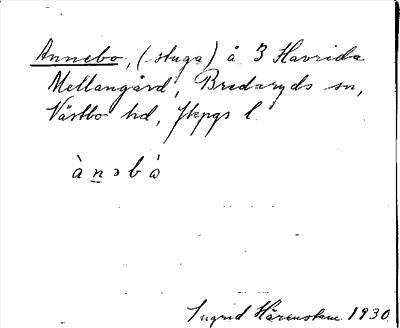 Annebo, (stuga) å 3 Havrida
Mellangård, Bredaryds sn,
Västbo hd, Jkpgs l.
àn̲əbå̀
Ingrid 1930